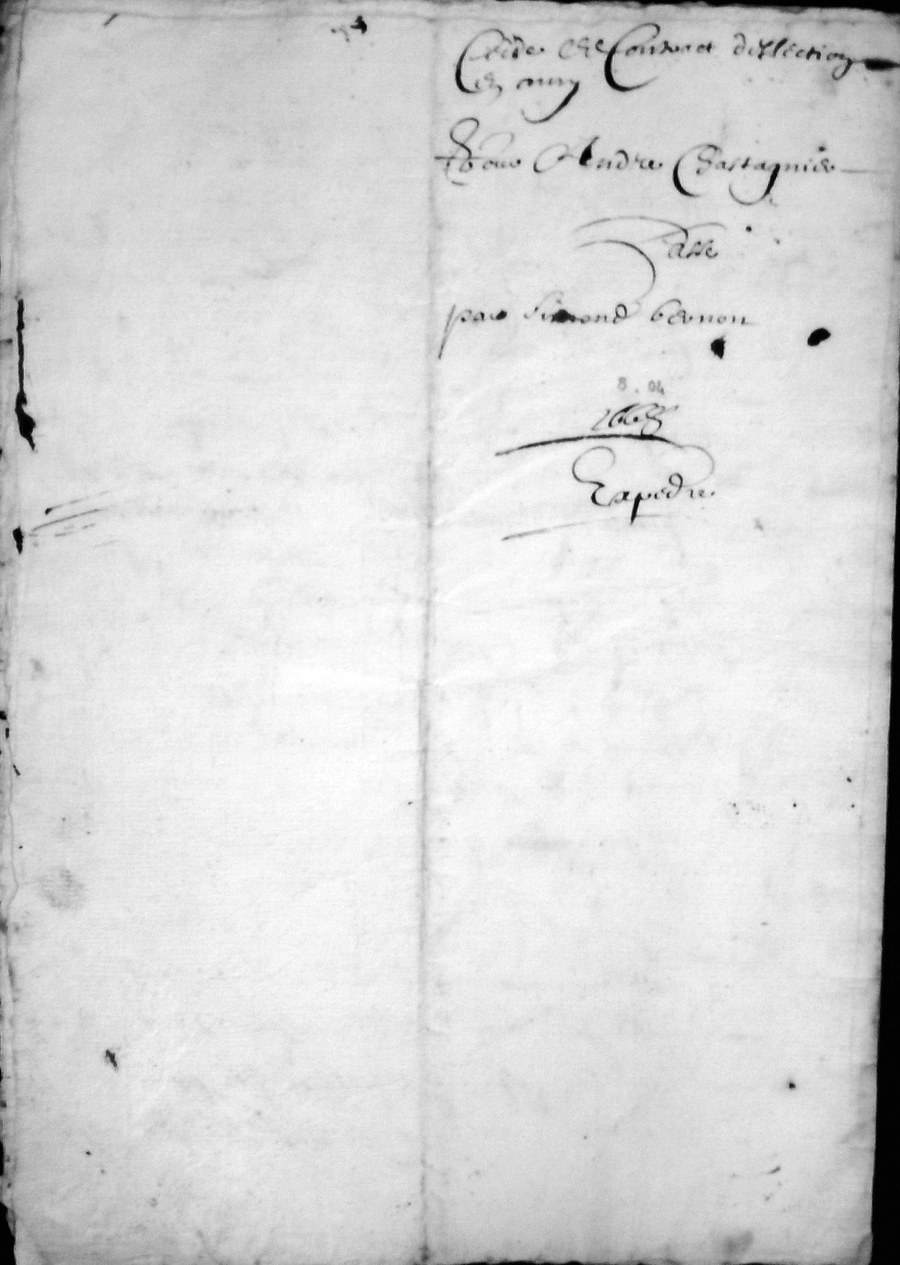 Contract d'ellection
en amy
Pour Andre Chastagnier
Passe
par Simond bernon
8.04
Expedie